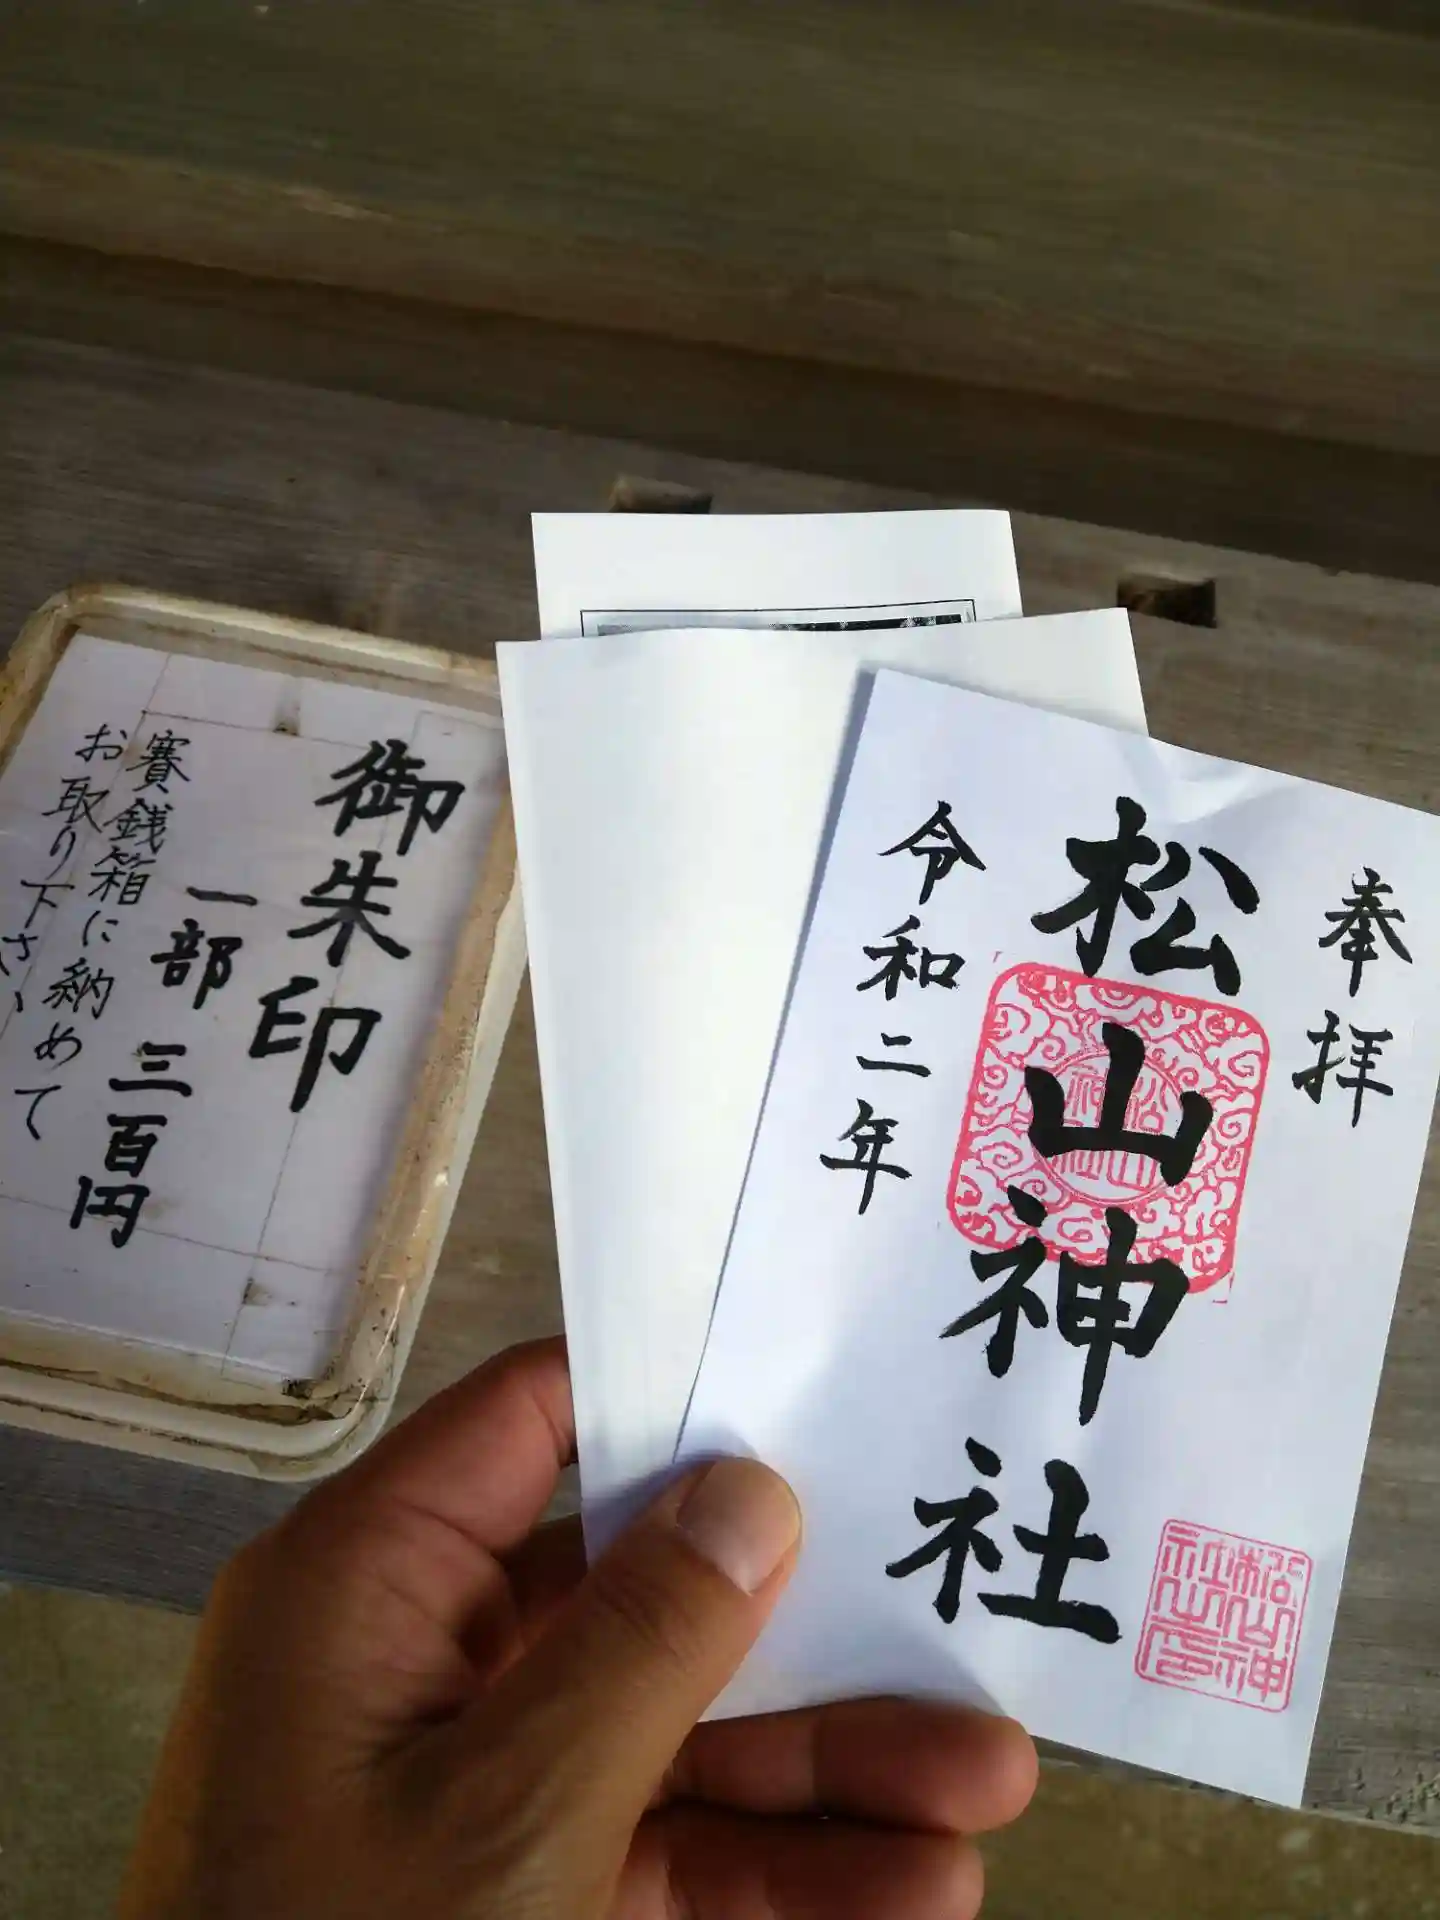 奉拝
松山神社
令和二年
松山神社
松山神社印
御朱印
一部 三百円
賽銭箱に納めて
お取り下さい